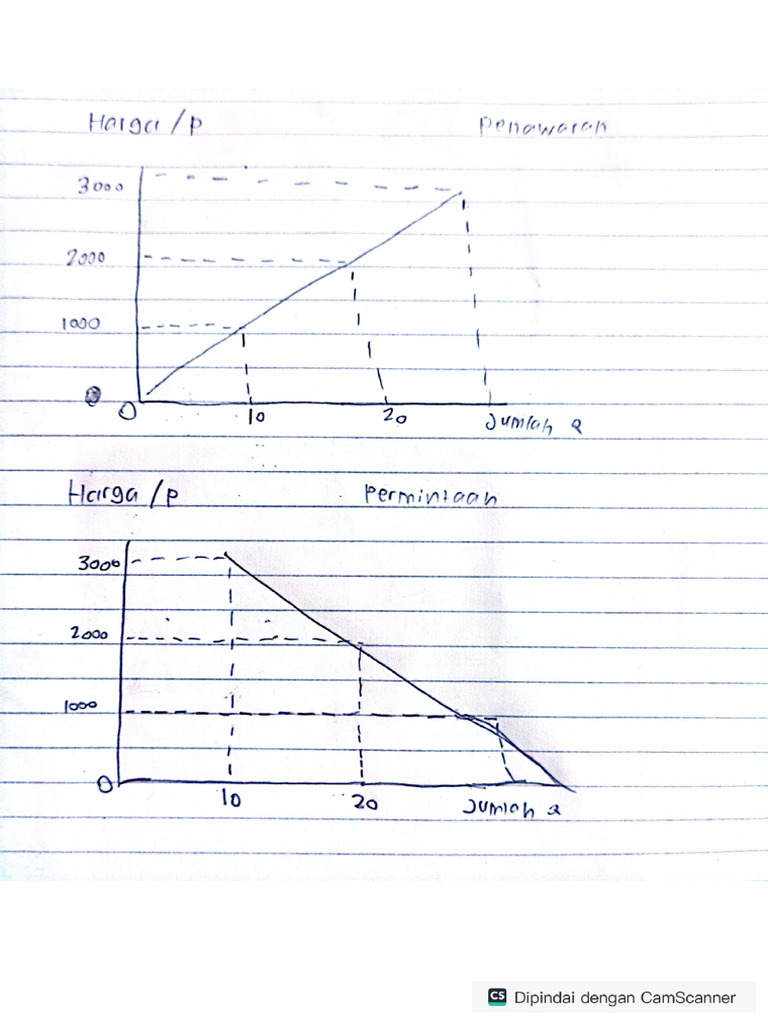 Harga / P Penawaran
3000
2000
1000
0 10 20 Jumlah Q
Harga / P Permintaan
3000
2000
1000
0
10 20 Jumlah Q
CS Dipindai dengan CamScanner